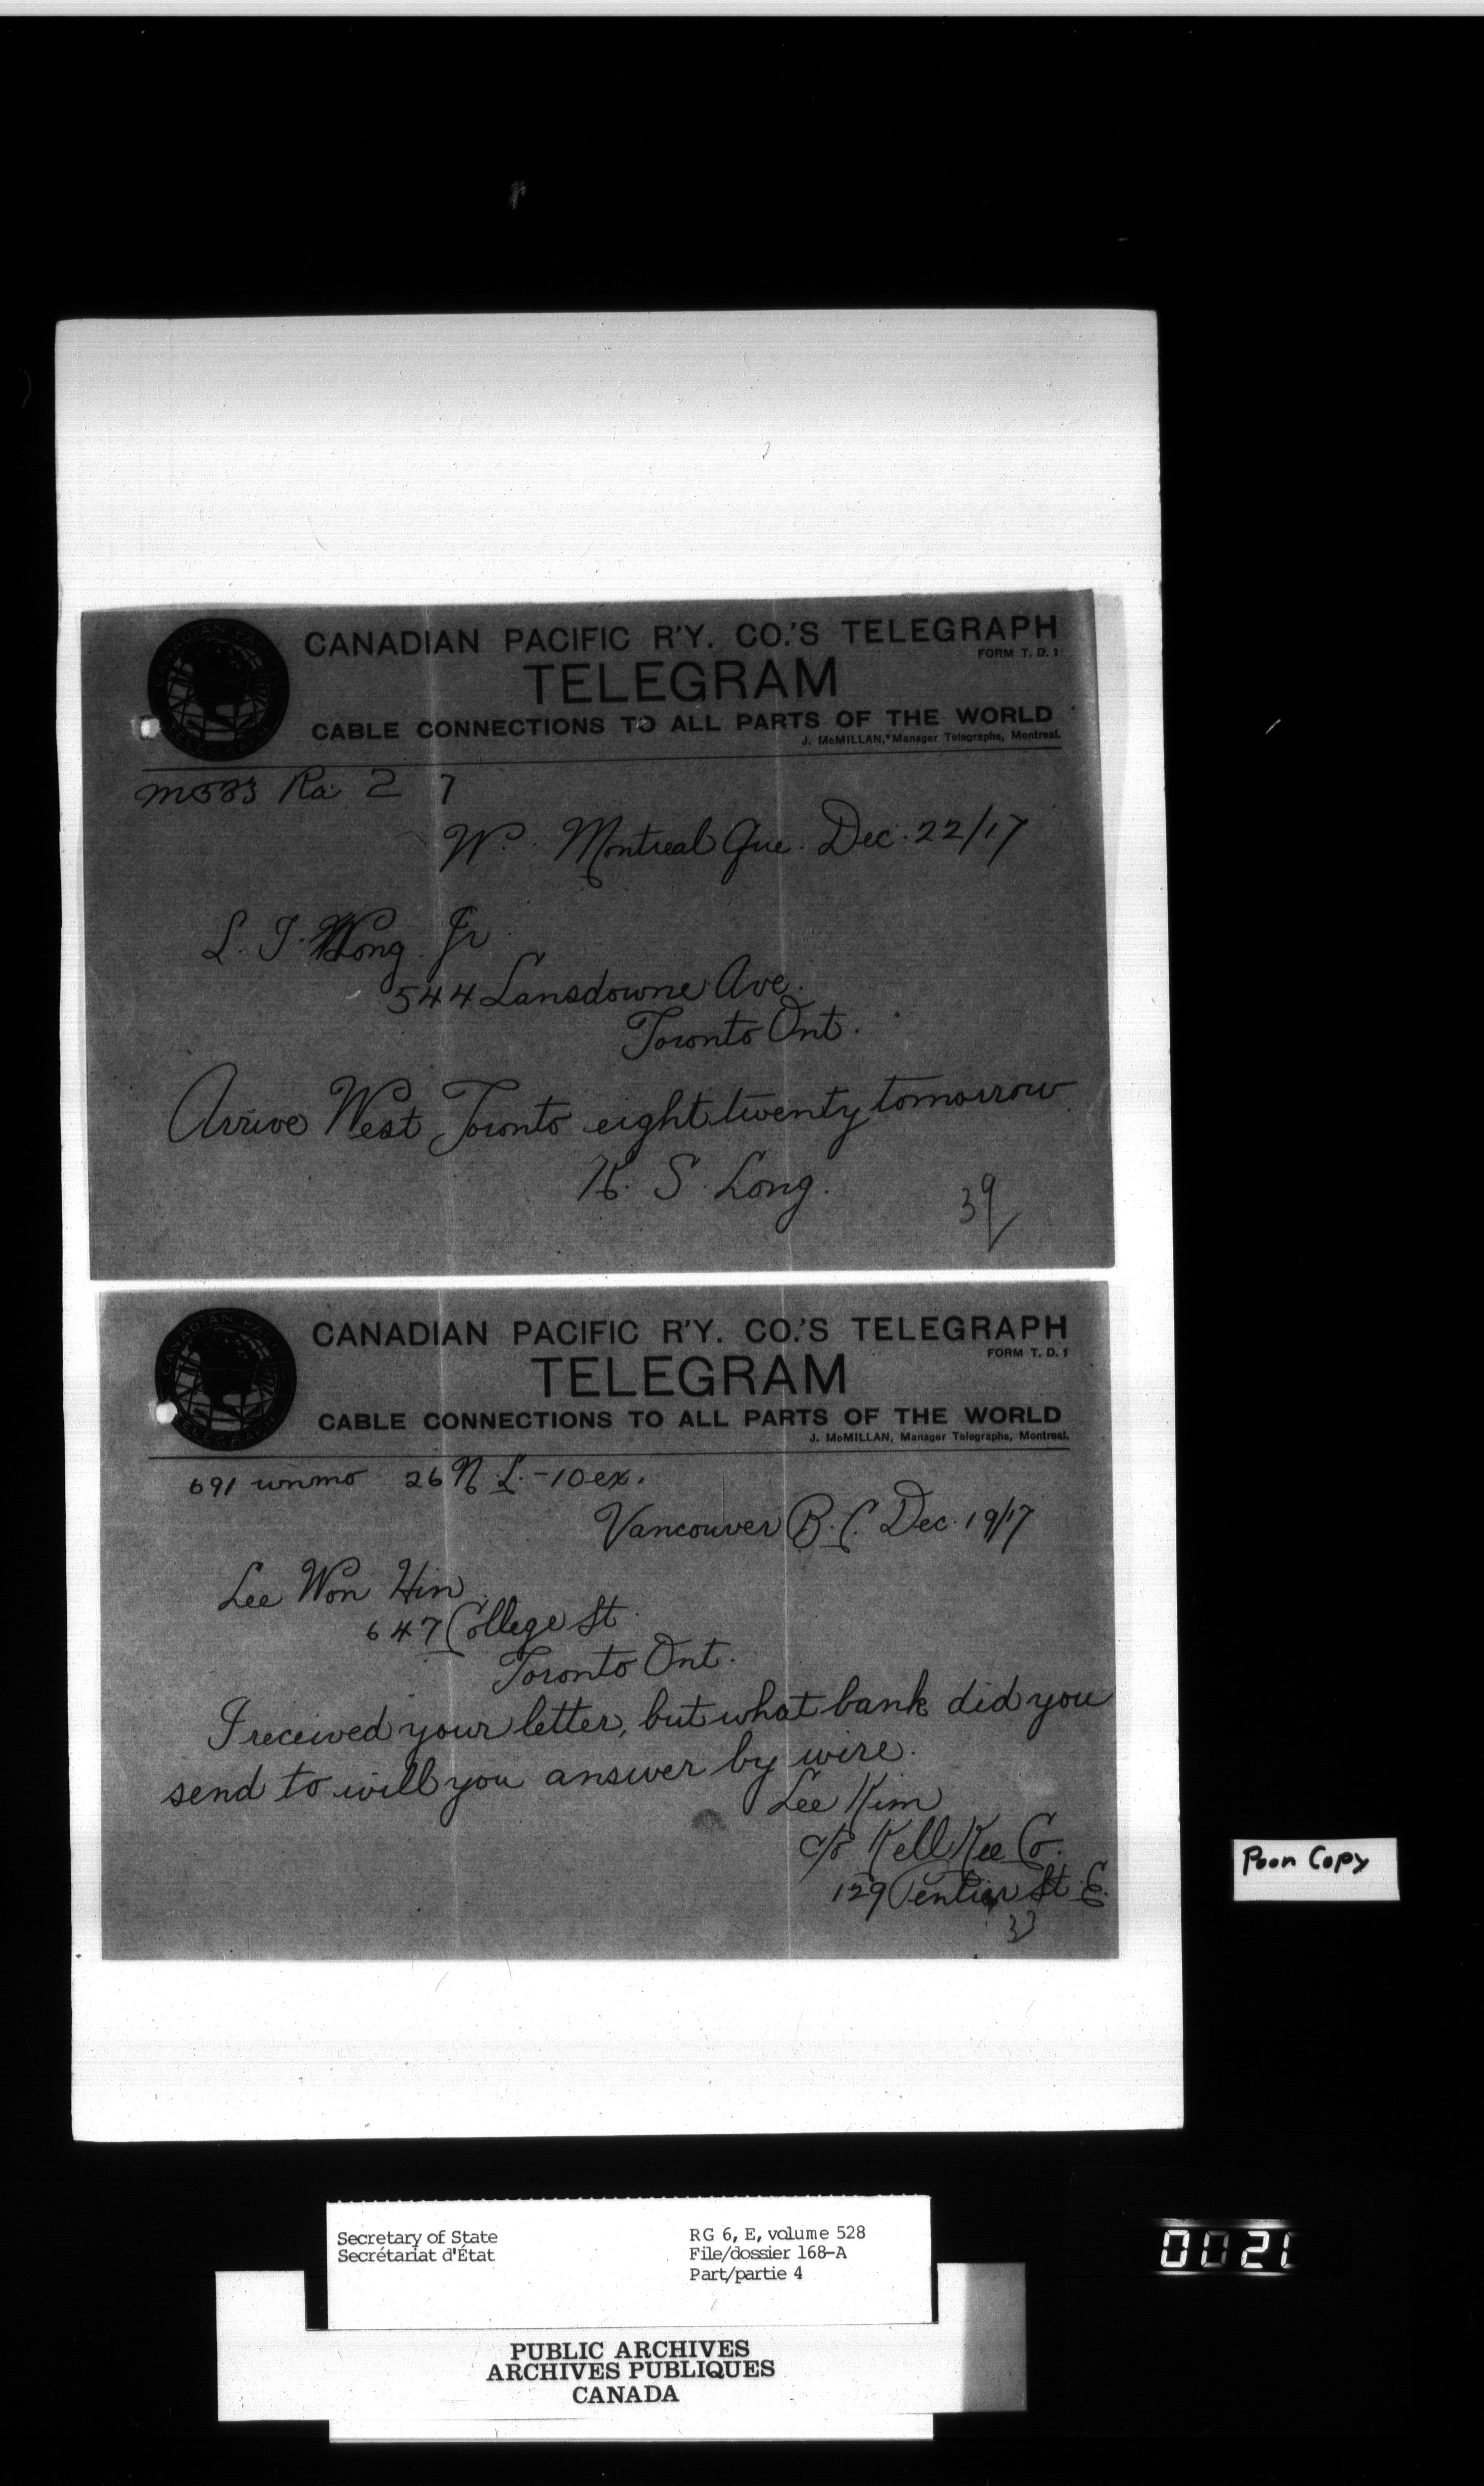 CANADIAN PACIFIC R'Y. CO.'S TELEGRAPH
FORM T. D. 1
TELEGRAM
CABLE CONNECTIONS TO ALL PARTS OF THE WORLD
J. McMILLAN, Manager Telegraphs, Montreal.
Ra 2 7
W. Montreal Que. Dec. 22/17
L. J. Wong Jr
544 Lansdowne Ave.
Toronto Ont.
Arrive West Toronto eight twenty tomorrow
K. S. Long.
39
CANADIAN PACIFIC R'Y. CO.'S TELEGRAPH
FORM T. D. 1
TELEGRAM
CABLE CONNECTIONS TO ALL PARTS OF THE WORLD
J. McMILLAN, Manager Telegraphs, Montreal.
691 wnmo 26 N. L. - 10 ex.
Vancouver B. C. Dec. 19/17
Lee Won Hin
647 College St.
Toronto Ont.
I received your letter, but what bank did you
send to will you answer by wire.
Lee Kim
c/o Kell Kee Co.
129 St. E.
33
Poon Copy
Secretary of State
Secrétariat d'État
RG 6, E, volume 528
File/dossier 168-A
Part/partie 4
0021
PUBLIC ARCHIVES
ARCHIVES PUBLIQUES
CANADA